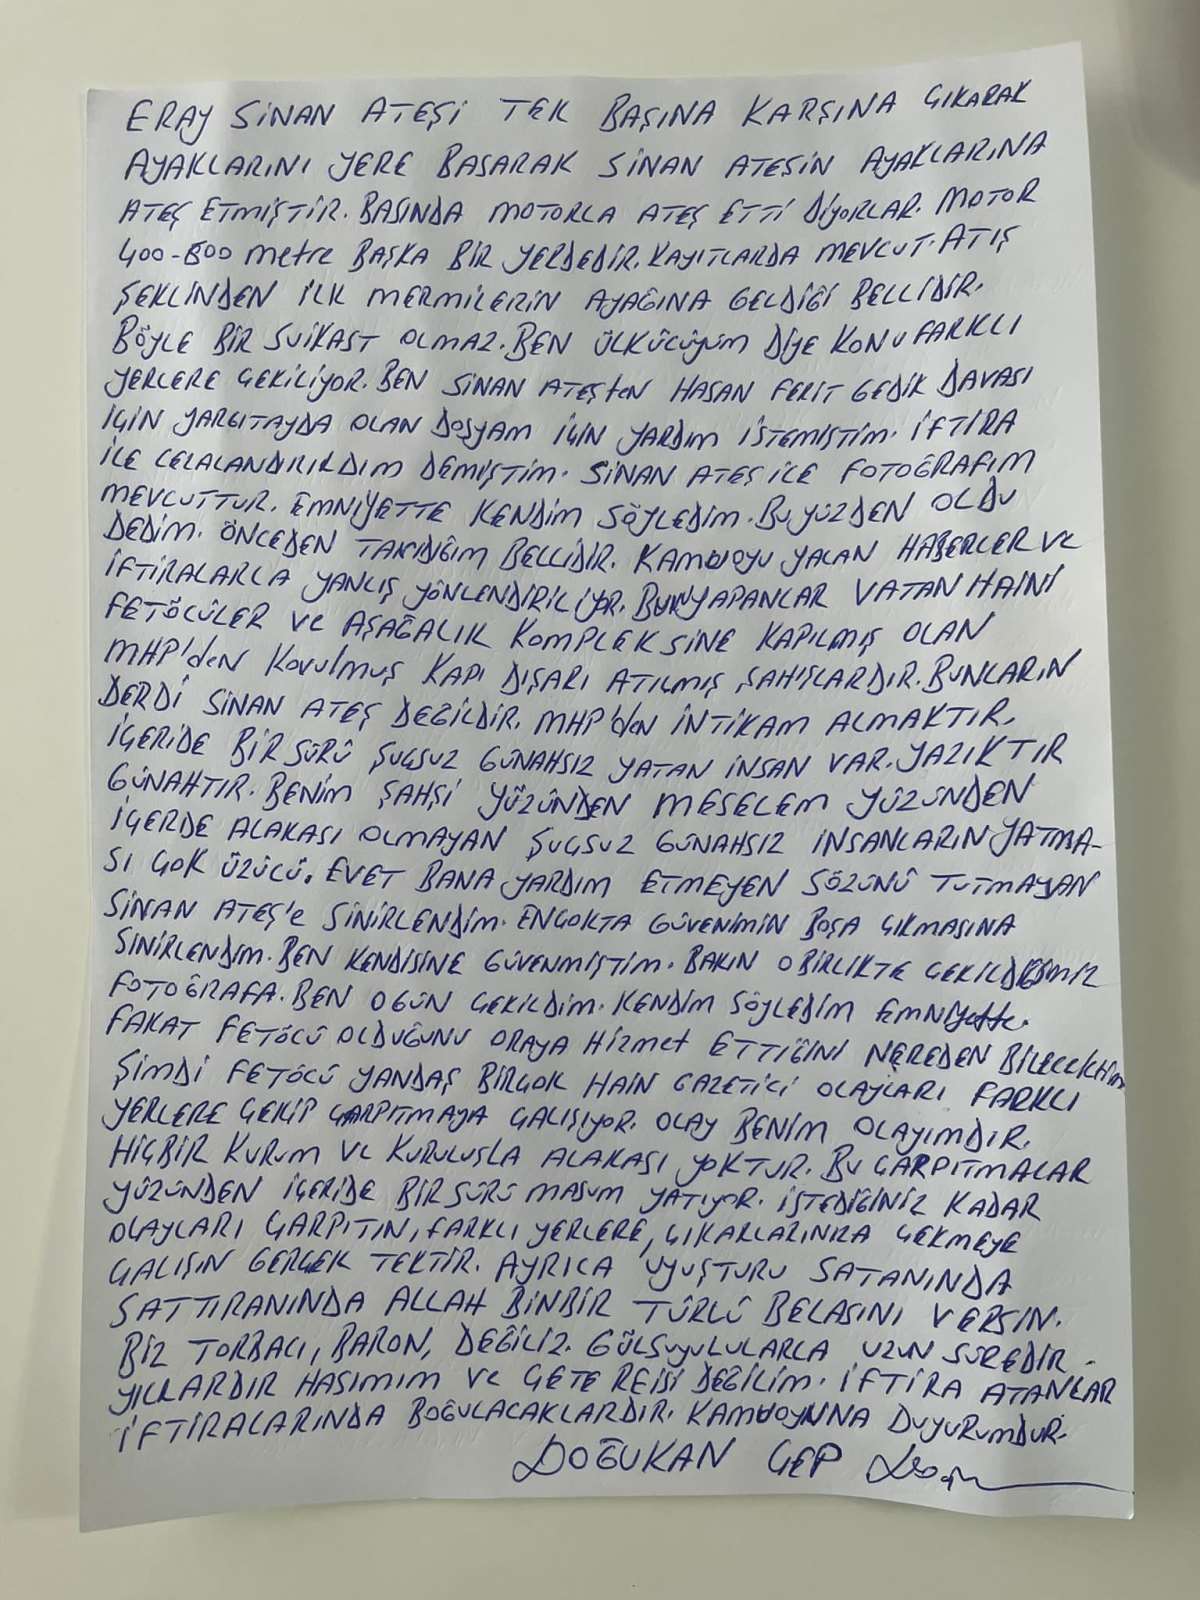 ERAY SİNAN ATEŞİ TEK BAŞINA KARŞINA ÇIKARAK
AYAKLARINI YERE BASARAK SİNAN ATEŞİN AYAKLARINA
ATEŞ ETMİŞTİR. BASINDA MOTORLA ATEŞ ETTİ DİYORLAR. MOTOR
400-500 metre BAŞKA BİR YERDEDİR. KAYITLARDA MEVCUT. ATIŞ
ŞEKLİNDEN İLK MERMİLERİN AYAĞINA GELDİĞİ BELLİDİR.
BÖYLE BİR SUİKAST OLMAZ. BEN ÜLKÜCÜYÜM DİYE KONU FARKLI
YERLERE ÇEKİLİYOR. BEN SİNAN ATEŞten HASAN FERİT GEDİK DAVASI
İÇİN YARGITAYDA OLAN DOSYAM İÇİN YARDIM İSTEMİŞTİM. İFTİRA
İLE CEZALANDIRILDIM DEMİŞTİM. SİNAN ATEŞ İLE FOTOĞRAFIM
MEVCUTTUR. EMNİYETTE KENDİM SÖYLEDİM. BU YÜZDEN OLDU
DEDİM. ÖNCEDEN TANIDIĞIM BELLİDİR. KAMUOYU YALAN HABERLER VE
İFTİRALARLA YANLIŞ YÖNLENDİRİLİYOR. BUNU YAPANLAR VATAN HAİNİ
FETÖCÜLER VE AŞAĞALIK KOMPLEKSİNE KAPILMIŞ OLAN
MHP'den KOVULMUŞ KAPI DIŞARI ATILMIŞ ŞAHIŞLARDIR. BUNLARIN
DERDİ SİNAN ATEŞ DEĞİLDİR. MHP'den İNTİKAM ALMAKTIR.
İÇERİDE BİR SÜRÜ SUÇSUZ GÜNAHSIZ YATAN İNSAN VAR. YAZIKTIR
GÜNAHTIR. BENİM ŞAHSİ YÜZÜNDEN MESELEM YÜZÜNDEN
İÇERDE ALAKASI OLMAYAN SUÇSUZ GÜNAHSIZ İNSANLARIN YATMA-
SI ÇOK ÜZÜCÜ. EVET BANA YARDIM ETMEYEN SÖZÜNÜ TUTMAYAN
SİNAN ATEŞ'e SİNİRLENDİM. ENÇOKTA GÜVENİMİN BOŞA ÇIKMASINA
SİNİRLENDİM. BEN KENDİSİNE GÜVENMİŞTİM. BAKIN O BİRLİKTE ÇEKİLDİĞİMİZ
FOTOĞRAFA. BEN OGÜN ÇEKİLDİM. KENDİM SÖYLEDİM EMNİYette.
FAKAT FETÖCÜ OLDUĞUNU ORAYA HİZMET ETTİĞİNİ NEREDEN BİLECEKTİM
ŞİMDİ FETÖCÜ YANDAŞ BİRÇOK HAİN GAZETİCİ OLAYLARI FARKLI
YERLERE ÇEKİP ÇARPITMAYA ÇALIŞIYOR. OLAY BENİM OLAYIMDIR.
HİÇBİR KURUM VE KURULUŞLA ALAKASI YOKTUR. BU ÇARPITMALAR
YÜZÜNDEN İÇERİDE BİR SÜRÜ MASUM YATIYOR. İSTEDİĞİNİZ KADAR
OLAYLARI ÇARPITIN, FARKLI YERLERE, ÇIKARLARINIZA ÇEKMEYE
ÇALIŞIN GERÇEK TEKTİR. AYRICA UYUŞTURU SATANINDA
SATTIRANINDA ALLAH BİNBİR TÜRLÜ BELASINI VERSİN.
BİZ TORBACI, BARON, DEĞİLİZ. GÜLSUYULULARLA UZUN SÜREDİR.
YILLARDIR HASIMIM VE ÇETE REİSİ DEĞİLİM. İFTİRA ATANLAR
İFTİRALARINDA BOĞULACAKLARDIR. KAMUOYUNA DUYURUMDUR.
DOĞUKAN ÇEP